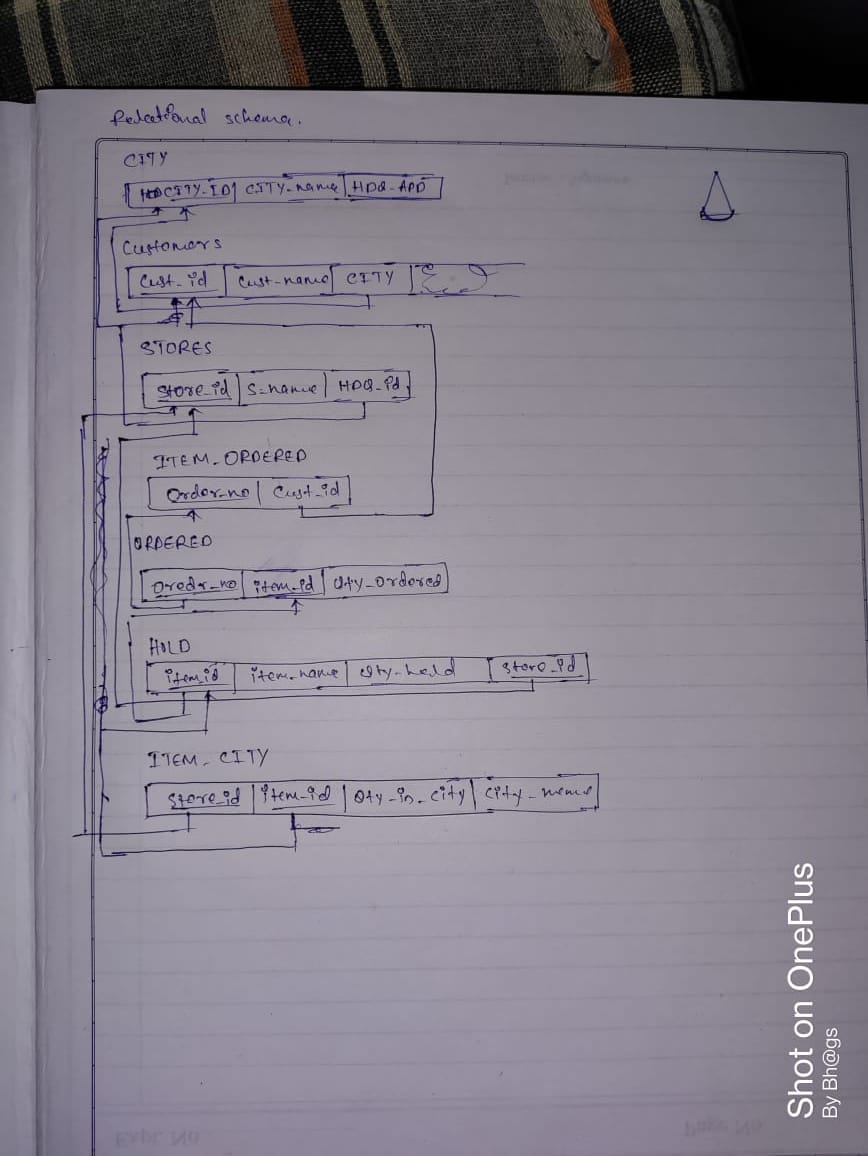 Relational schema.
CITY
CITY-ID CITY-name HDQ-ADD
Customers
Cust-id Cust-name CITY
STORES
Store-id S-name HDQ-id
ITEM-ORDERED
Order-no Cust-id
ORDERED
Oredr-no item-id Qty-ordered
HOLD
item-id item-name Qty-held Store-id
ITEM-CITY
Store-id item-id Qty-in-city city-name
Expt. No
Page No
Shot on OnePlus
By Bh@gs